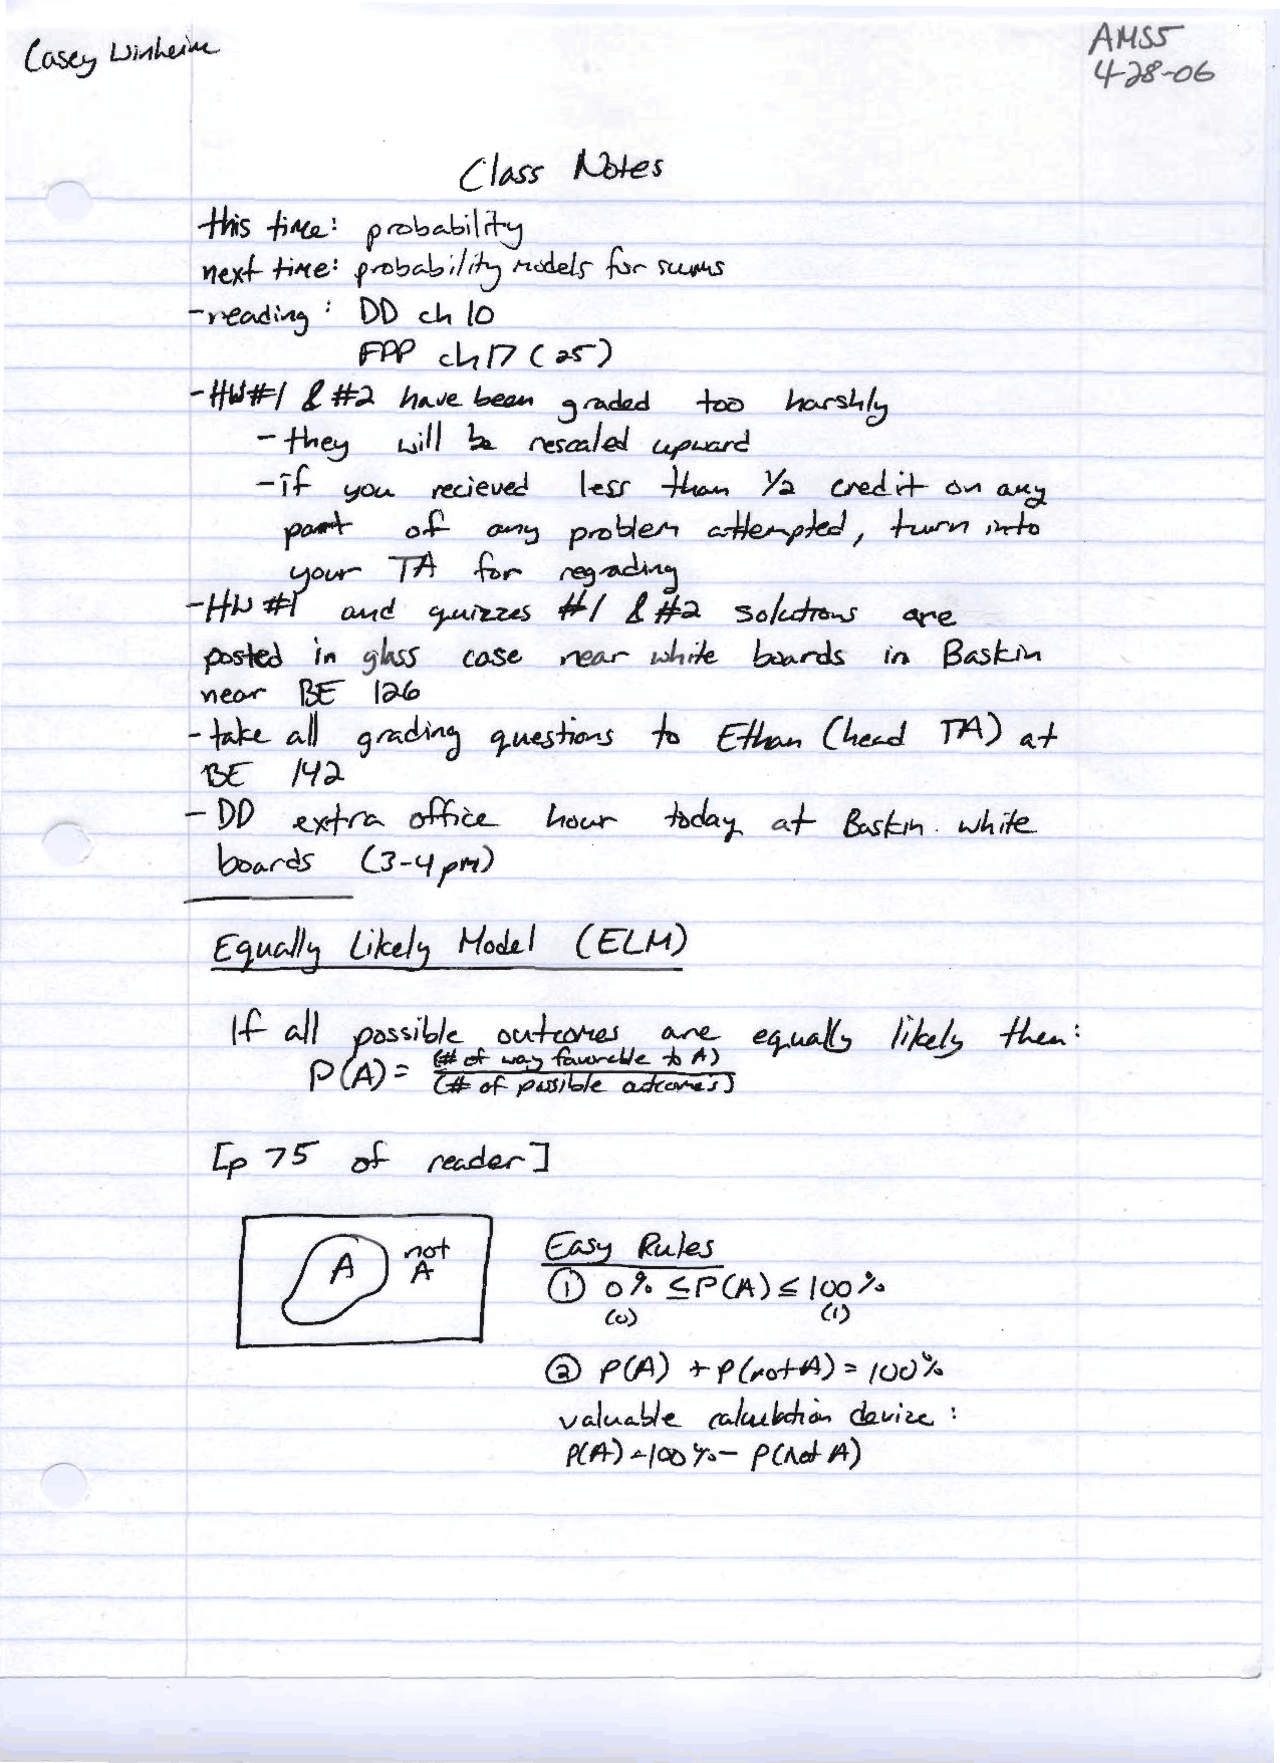 Casey Winheim
AMS5
4-28-06
Class Notes
this time: probability
next time: probability models for sums
-reading: DD ch 10
FPP ch 17 (25)
-HW#1 & #2 have been graded too harshly
- they will be rescaled upward
-if you recieved less than 1/2 credit on any
part of any problem attempted, turn into
your TA for regrading
-HW #1 and quizzes #1 & #2 solutions are
posted in glass case near white boards in Baskin
near BE 126
-take all grading questions to Ethan (head TA) at
BE 142
- DD extra office hour today at Baskin white
boards (3-4pm)
Equally Likely Model (ELM)
If all possible outcomes are equally likely then:
P(A) = (# of way favorable to A)
(# of possible outcomes)
[p 75 of reader]
A
not
A
Easy Rules
① 0% ≤ P(A) ≤ 100%
(0) (1)
② P(A) + P(not A) = 100%
valuable calculation device:
P(A) = 100% - P(not A)